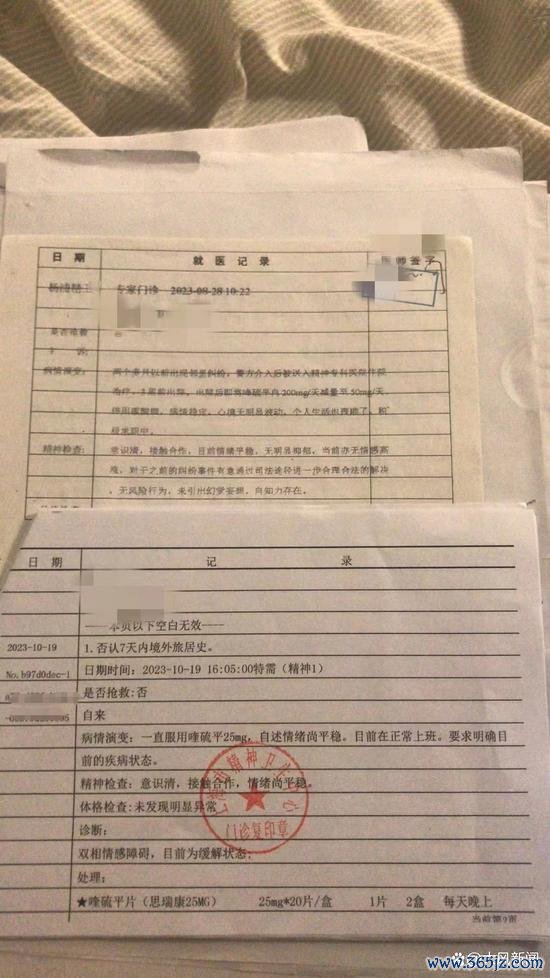 日 期
就 医 记 录
医师签字
专家门诊 2023-08-28 10:22
是否抢救
诉:
病情演变: 两个多月以前出现邻里纠纷,警方介入后被送入精神专科医院住院
治疗,出院后即将喹硫平由200mg/天减量至50mg/天,
病情稳定,心境无明显波动,个人生活也
精神检查: 意识清,接触合作,目前情绪平稳,无明显抑郁,当前亦无情感高
涨,对于之前的纠纷事件有意通过司法途径进一步合理合法的解决
,无风险行为,未引出幻觉妄想,自知力存在。
日 期
记 录
——本页以下空白无效——
2023-10-19
1.否认7天内境外旅居史。
No.b97d0dec-1
日期时间:2023-10-19 16:05:00特需(精神1)
是否抢救:否
自来
病情演变:一直服用喹硫平25mg,自述情绪尚平稳。目前在正常上班。要求明确目
前的疾病状态。
精神检查:意识清,接触合作,情绪尚平稳。
体格检查:未发现明显异常
诊断:
双相情感障碍,目前为缓解状态;
处理:
★喹硫平片(思瑞康25MG) 25mg*20片/盒 1片 2盒 每天晚上
精神卫生中心
门诊复印章
大风新闻
www.365jz.com